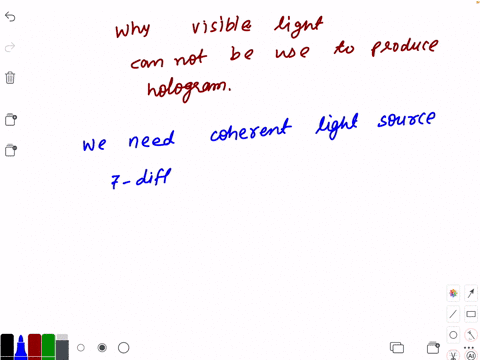 Why visible light
can not be use to produce
hologram.
We need coherent light source
7-diff